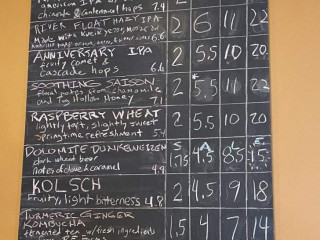 american IPA w/
chinook & centennial hops 7.4
RIVER FLOAT HAZY IPA 2 6 11 22
Made with
6.6
ANNIVERSARY IPA 2 5.5 10 20
fruity comet &
cascade hops 6.6
SOOTHING SAISON 2 5.5 11 22
floral notes from chamomile
and Tug Hollow Honey 7.1
RASPBERRY WHEAT 2 5.5 10 20
lightly tart, slightly sweet
springtime refreshment 5.4
DOLOMITE DUNKELWEIZEN 1.75 4 8.5 15
dark wheat beer
notes of clove & caramel 4.9
KOLSCH 2 4.5 9 18
Fruity, light bitterness 4.8
TURMERIC GINGER 1.5 4 7 14
KOMBUCHA
fermented tea w/ fresh ingredients